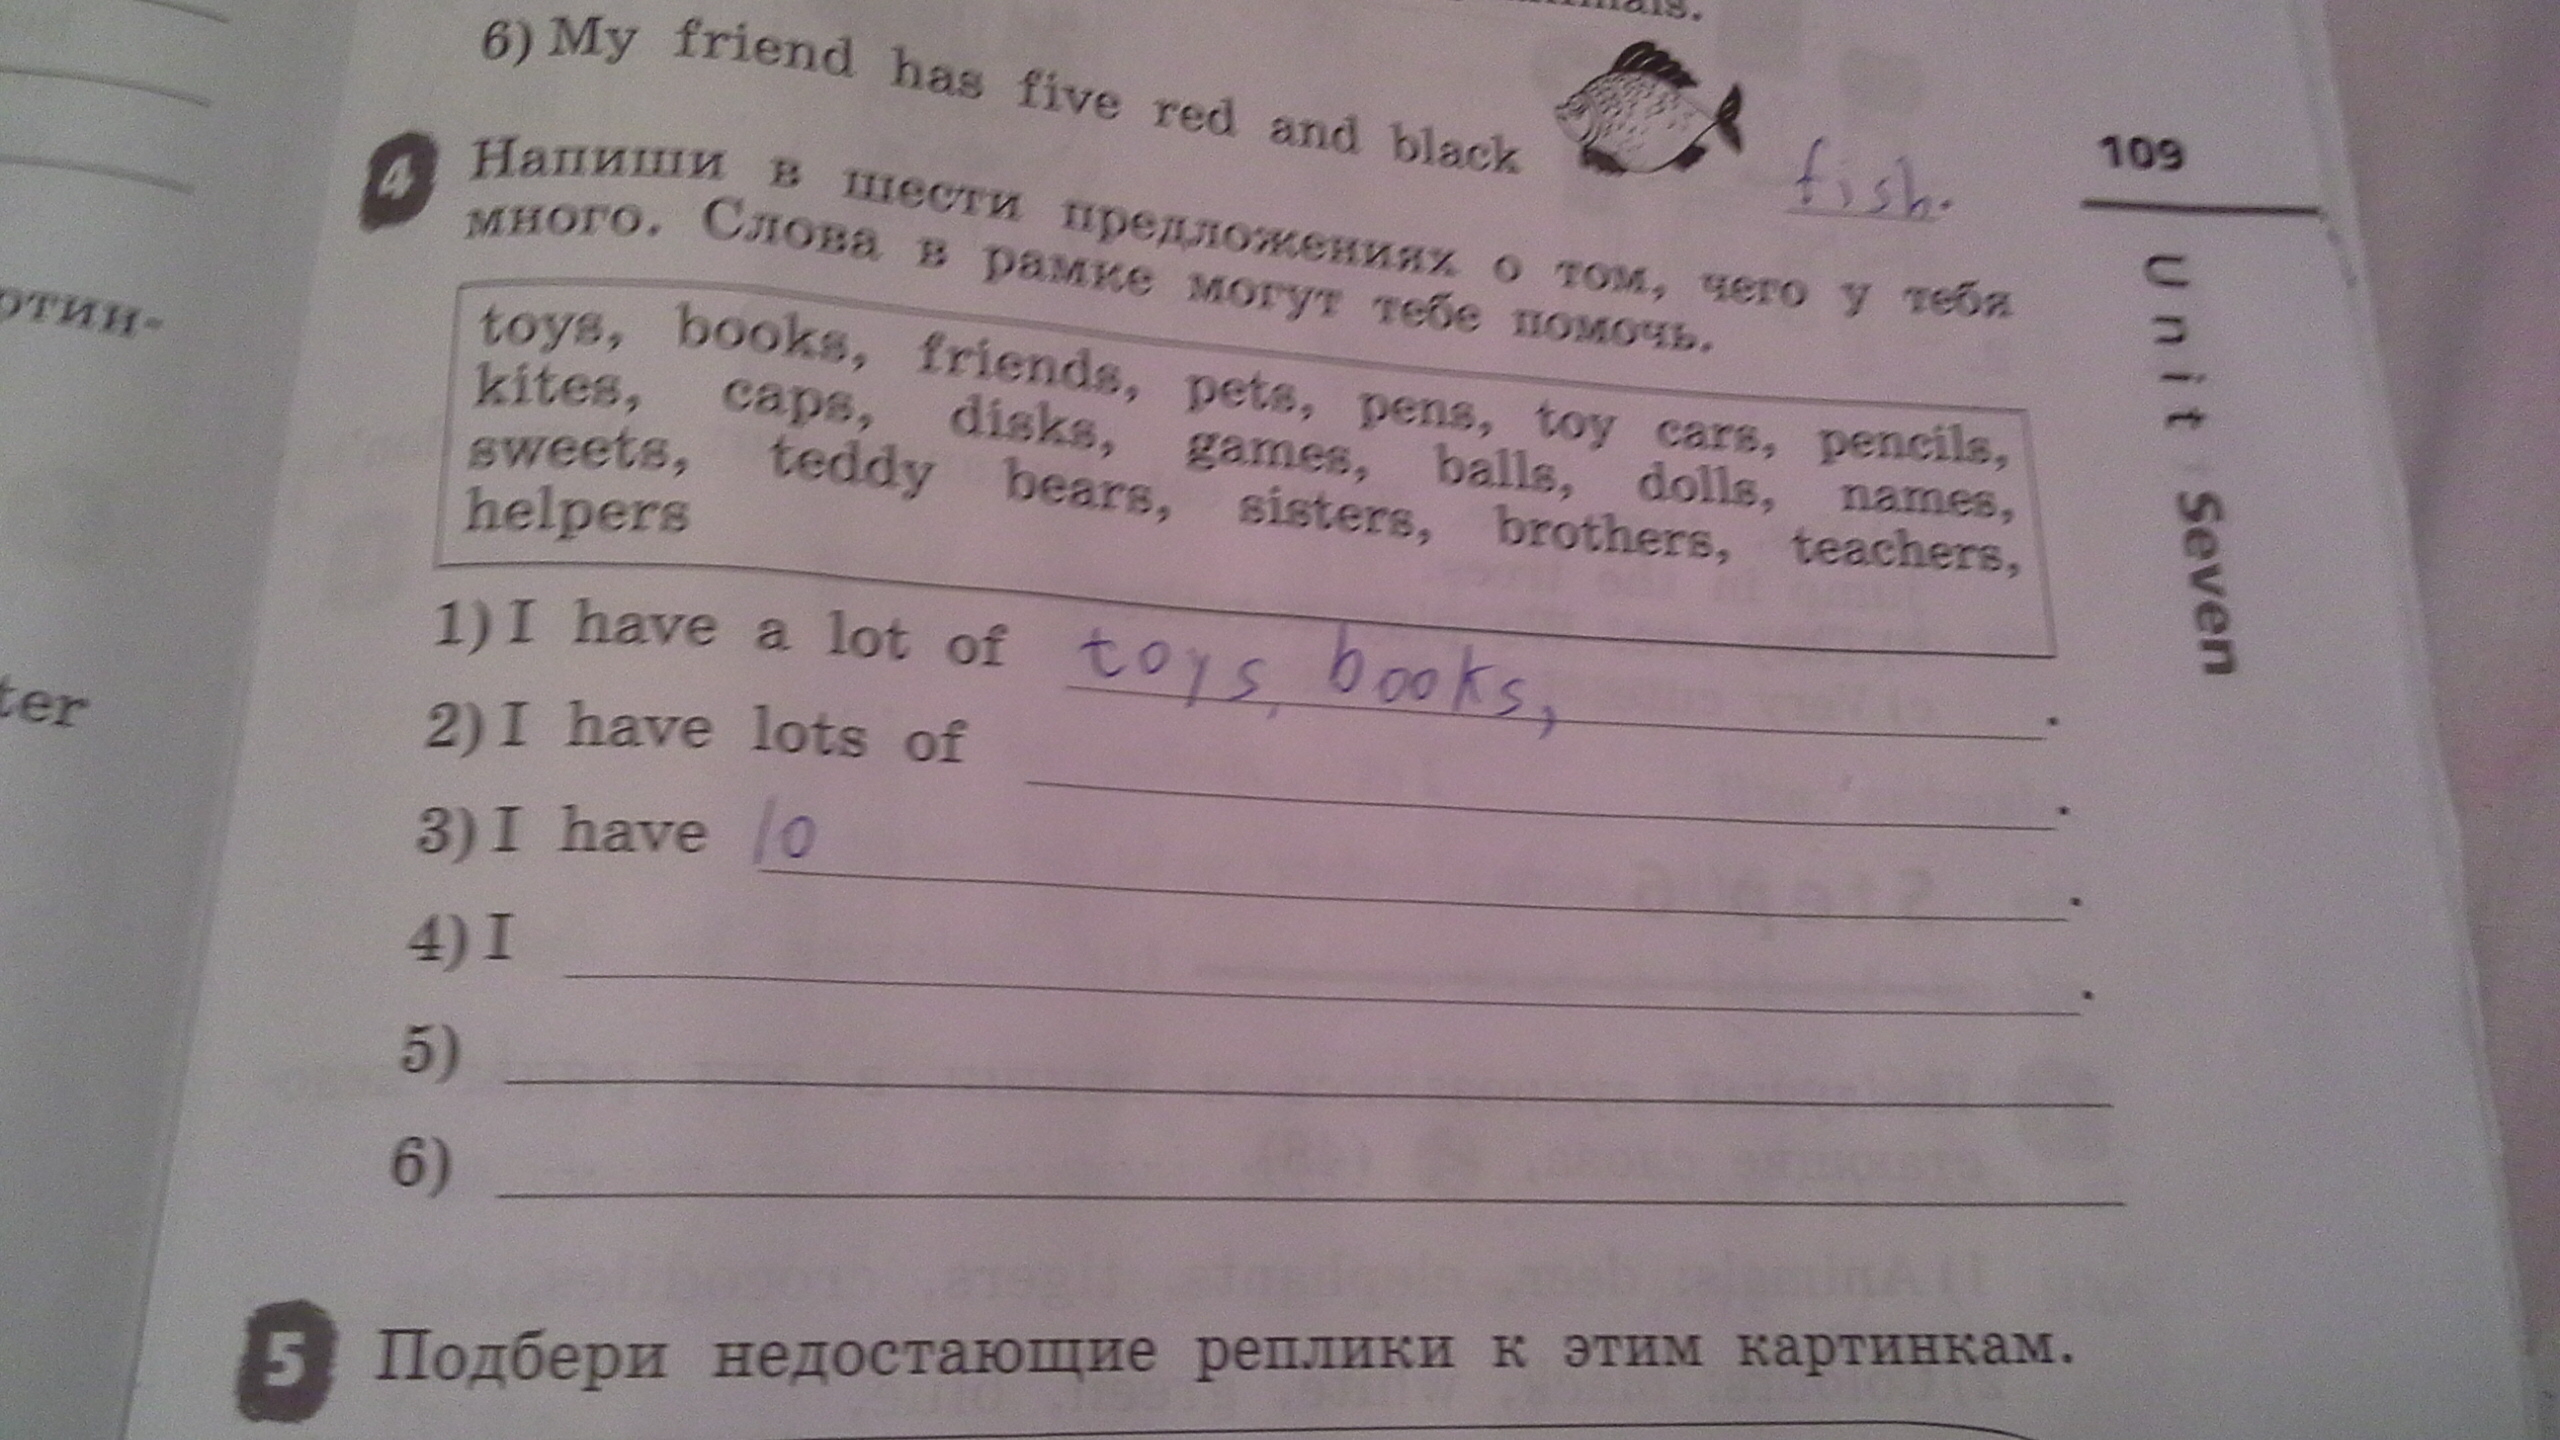 6) My friend has five red and black fish.
4 Напиши в шести предложениях о том, чего у тебя
много. Слова в рамке могут тебе помочь.
toys, books, friends, pets, pens, toy cars, pencils,
kites, caps, disks, games, balls, dolls, names,
sweets, teddy bears, sisters, brothers, teachers,
helpers
1) I have a lot of toys, books, .
2) I have lots of .
3) I have lo .
4) I .
5)
6)
5 Подбери недостающие реплики к этим картинкам.
109
Unit Seven
ter